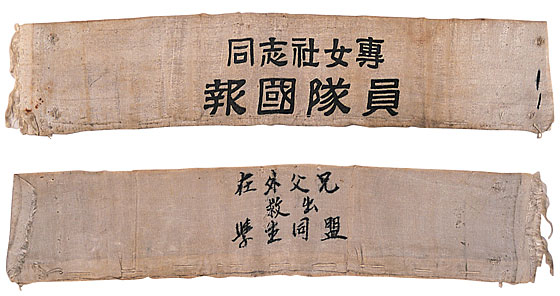 同志社女專
報國隊員
在外父兄
救出
學生同盟